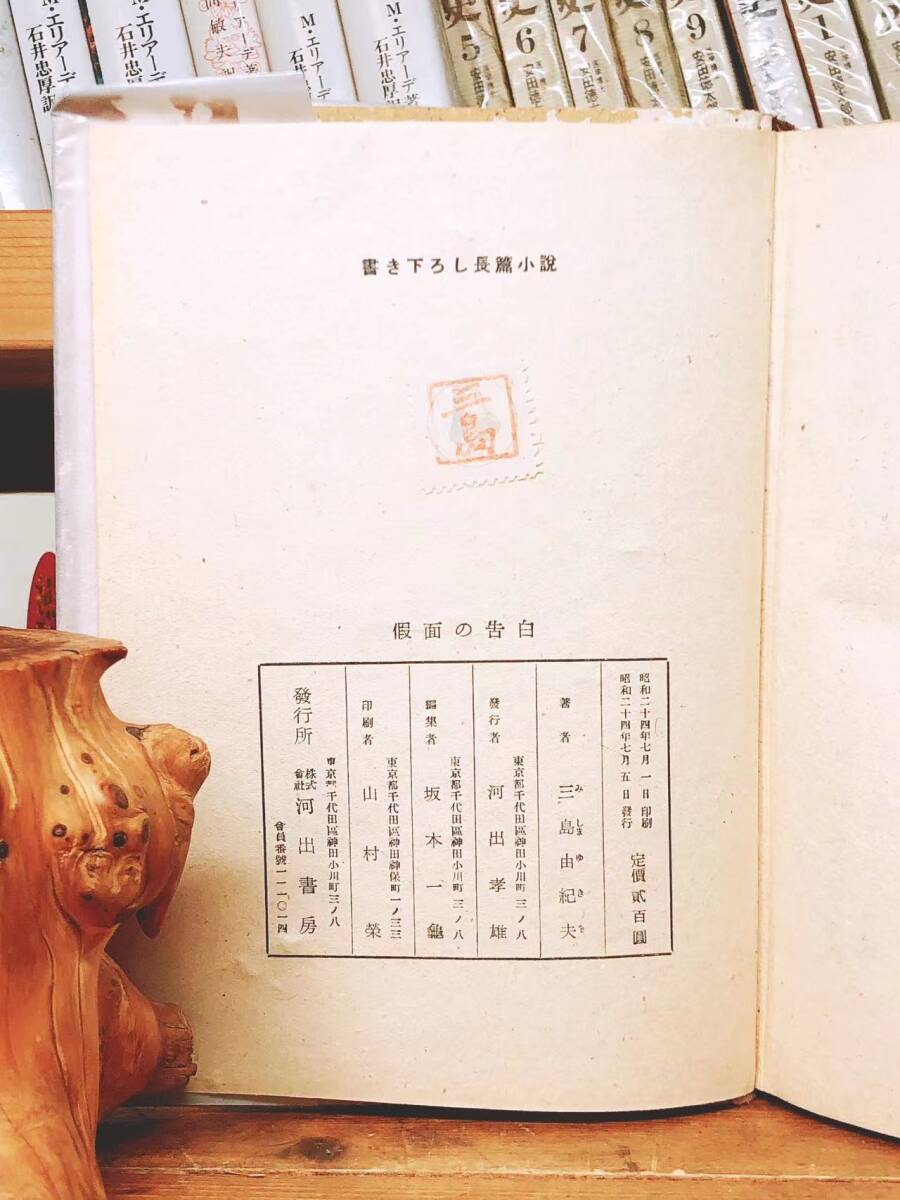 M・エリアーデ
石井忠厚訳
M・エリアーデ
石井忠厚訳
M・エリアーデ
石井忠厚訳
M・エリアーデ著
石井忠厚訳
史
5
史
6
史
7
安田徳
8
史
9
安田徳太郎
1
書き下ろし長篇小說
三島
假面の告白
昭和二十四年七月一日印刷
昭和二十四年七月五日發行
定價貳百圓
著者 三島由紀夫
みしまゆきを
發行者 河出孝雄
東京都千代田區神田小川町三ノ八
編集者 坂本一龜
東京都千代田區神田小川町三ノ八
印刷者 山村榮
東京都千代田區神田神保町一ノ三三
發行所 株式會社 河出書房
東京都千代田區神田小川町三ノ八
會員番號一一一〇一四